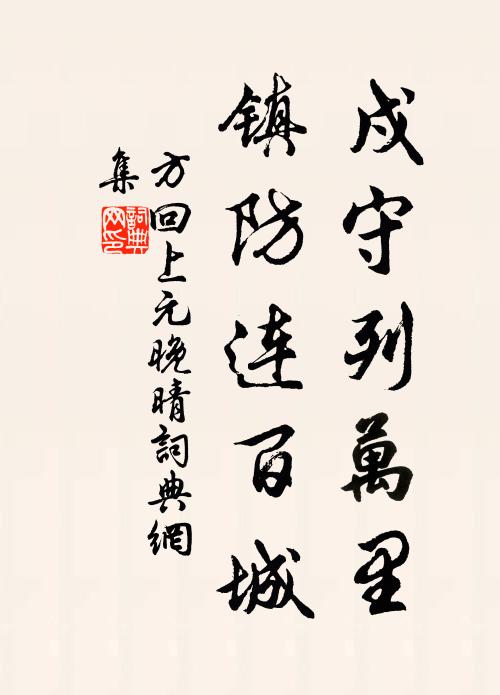 戍守列萬里
镇防连百城
方回上元晚晴詞典網
集
詞典网印